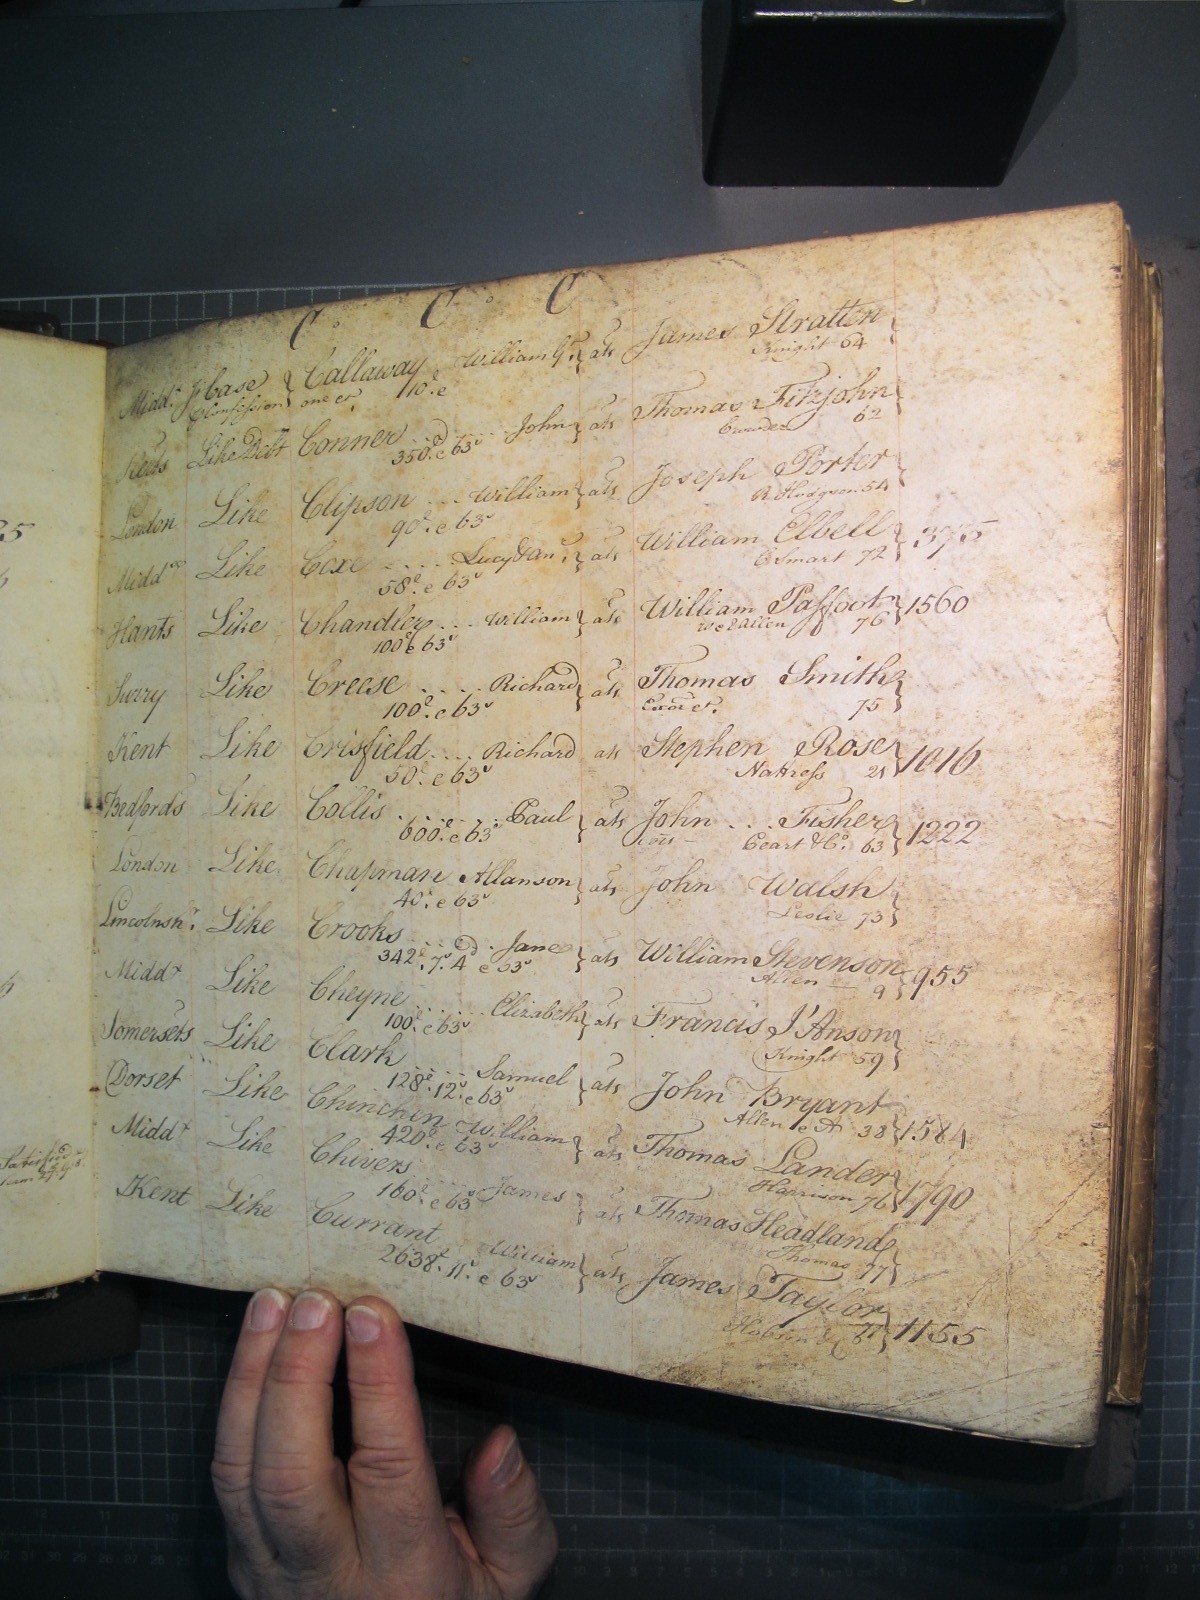 C. C. C
Midd.x Jk base Callaway William G. ats James Stratton
Confession one er 110.e Knight 64
Like Debt Conner John ats Thomas Fitzjohn
350.e 63s 62
London Like Clipson William ats Joseph Porter
90£.e 63s R Hodgson 54
Midd Like Coxe Lucy & an.r ats William Elbell 3975
58£.e 63s C Smart 72
Hants Like Chandler William ats William Paffoot 1560
100£ 63s Allen 76
Surry Like Creese Richard ats Thomas Smith
100£.e 63s 75
Kent Like Crisfield Richard ats Stephen Rose 1016
50£.e 63s Nattress 21
Bedfords Like Collis Paul ats John Fisher 1222
600£.e 63s Ceart & Co. 63
London Like Chapman Allanson ats John Walsh
40£.e 63s Leslie 73
Lincolnsh.r Like Crooks Jane ats William Stevenson 955
342£.7s.4d e 63s Allen 9
Midd.x Like Cheyne Elizabeth ats Francis I'Anson
100£.e 63s Knight 59
Somersets Like Clark Samuel ats John Bryant 1584
128£.12s.e 63s Allen e A 38
Dorset Like Chinchin William ats Thomas Lander 1790
420£.e 63s Harrison 76
Midd.x Like Chivers James ats Thomas Headland
160£.e 63s Thomas 77
Kent Like Currant William ats James Taylor 1155
2638£.11s.e 63s